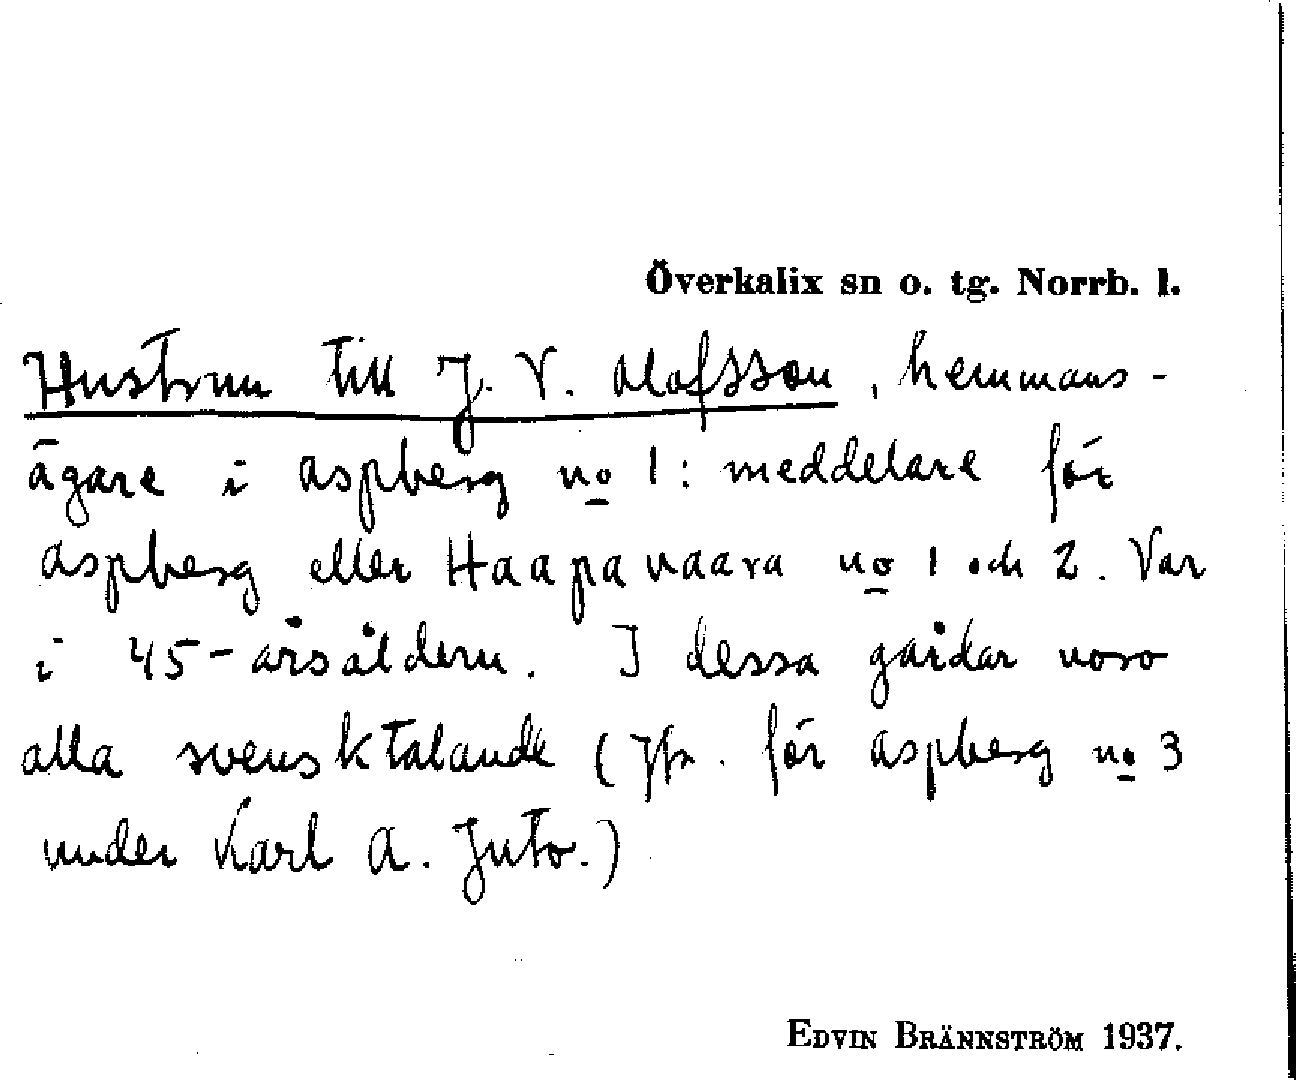 Överkalix sn o. tg. Norrb. l.
Hustrun till J. V. Olofsson, hemmans-
ägare i Aspberg no 1: meddelare för
Aspberg eller Haapavaara no 1 och 2. Var
i 45-årsåldern. I dessa gårdar voro
alla svensktalande (jfr. för Aspberg no 3
under Karl A. Juto.)
EDVIN BRÄNNSTRÖM 1937.